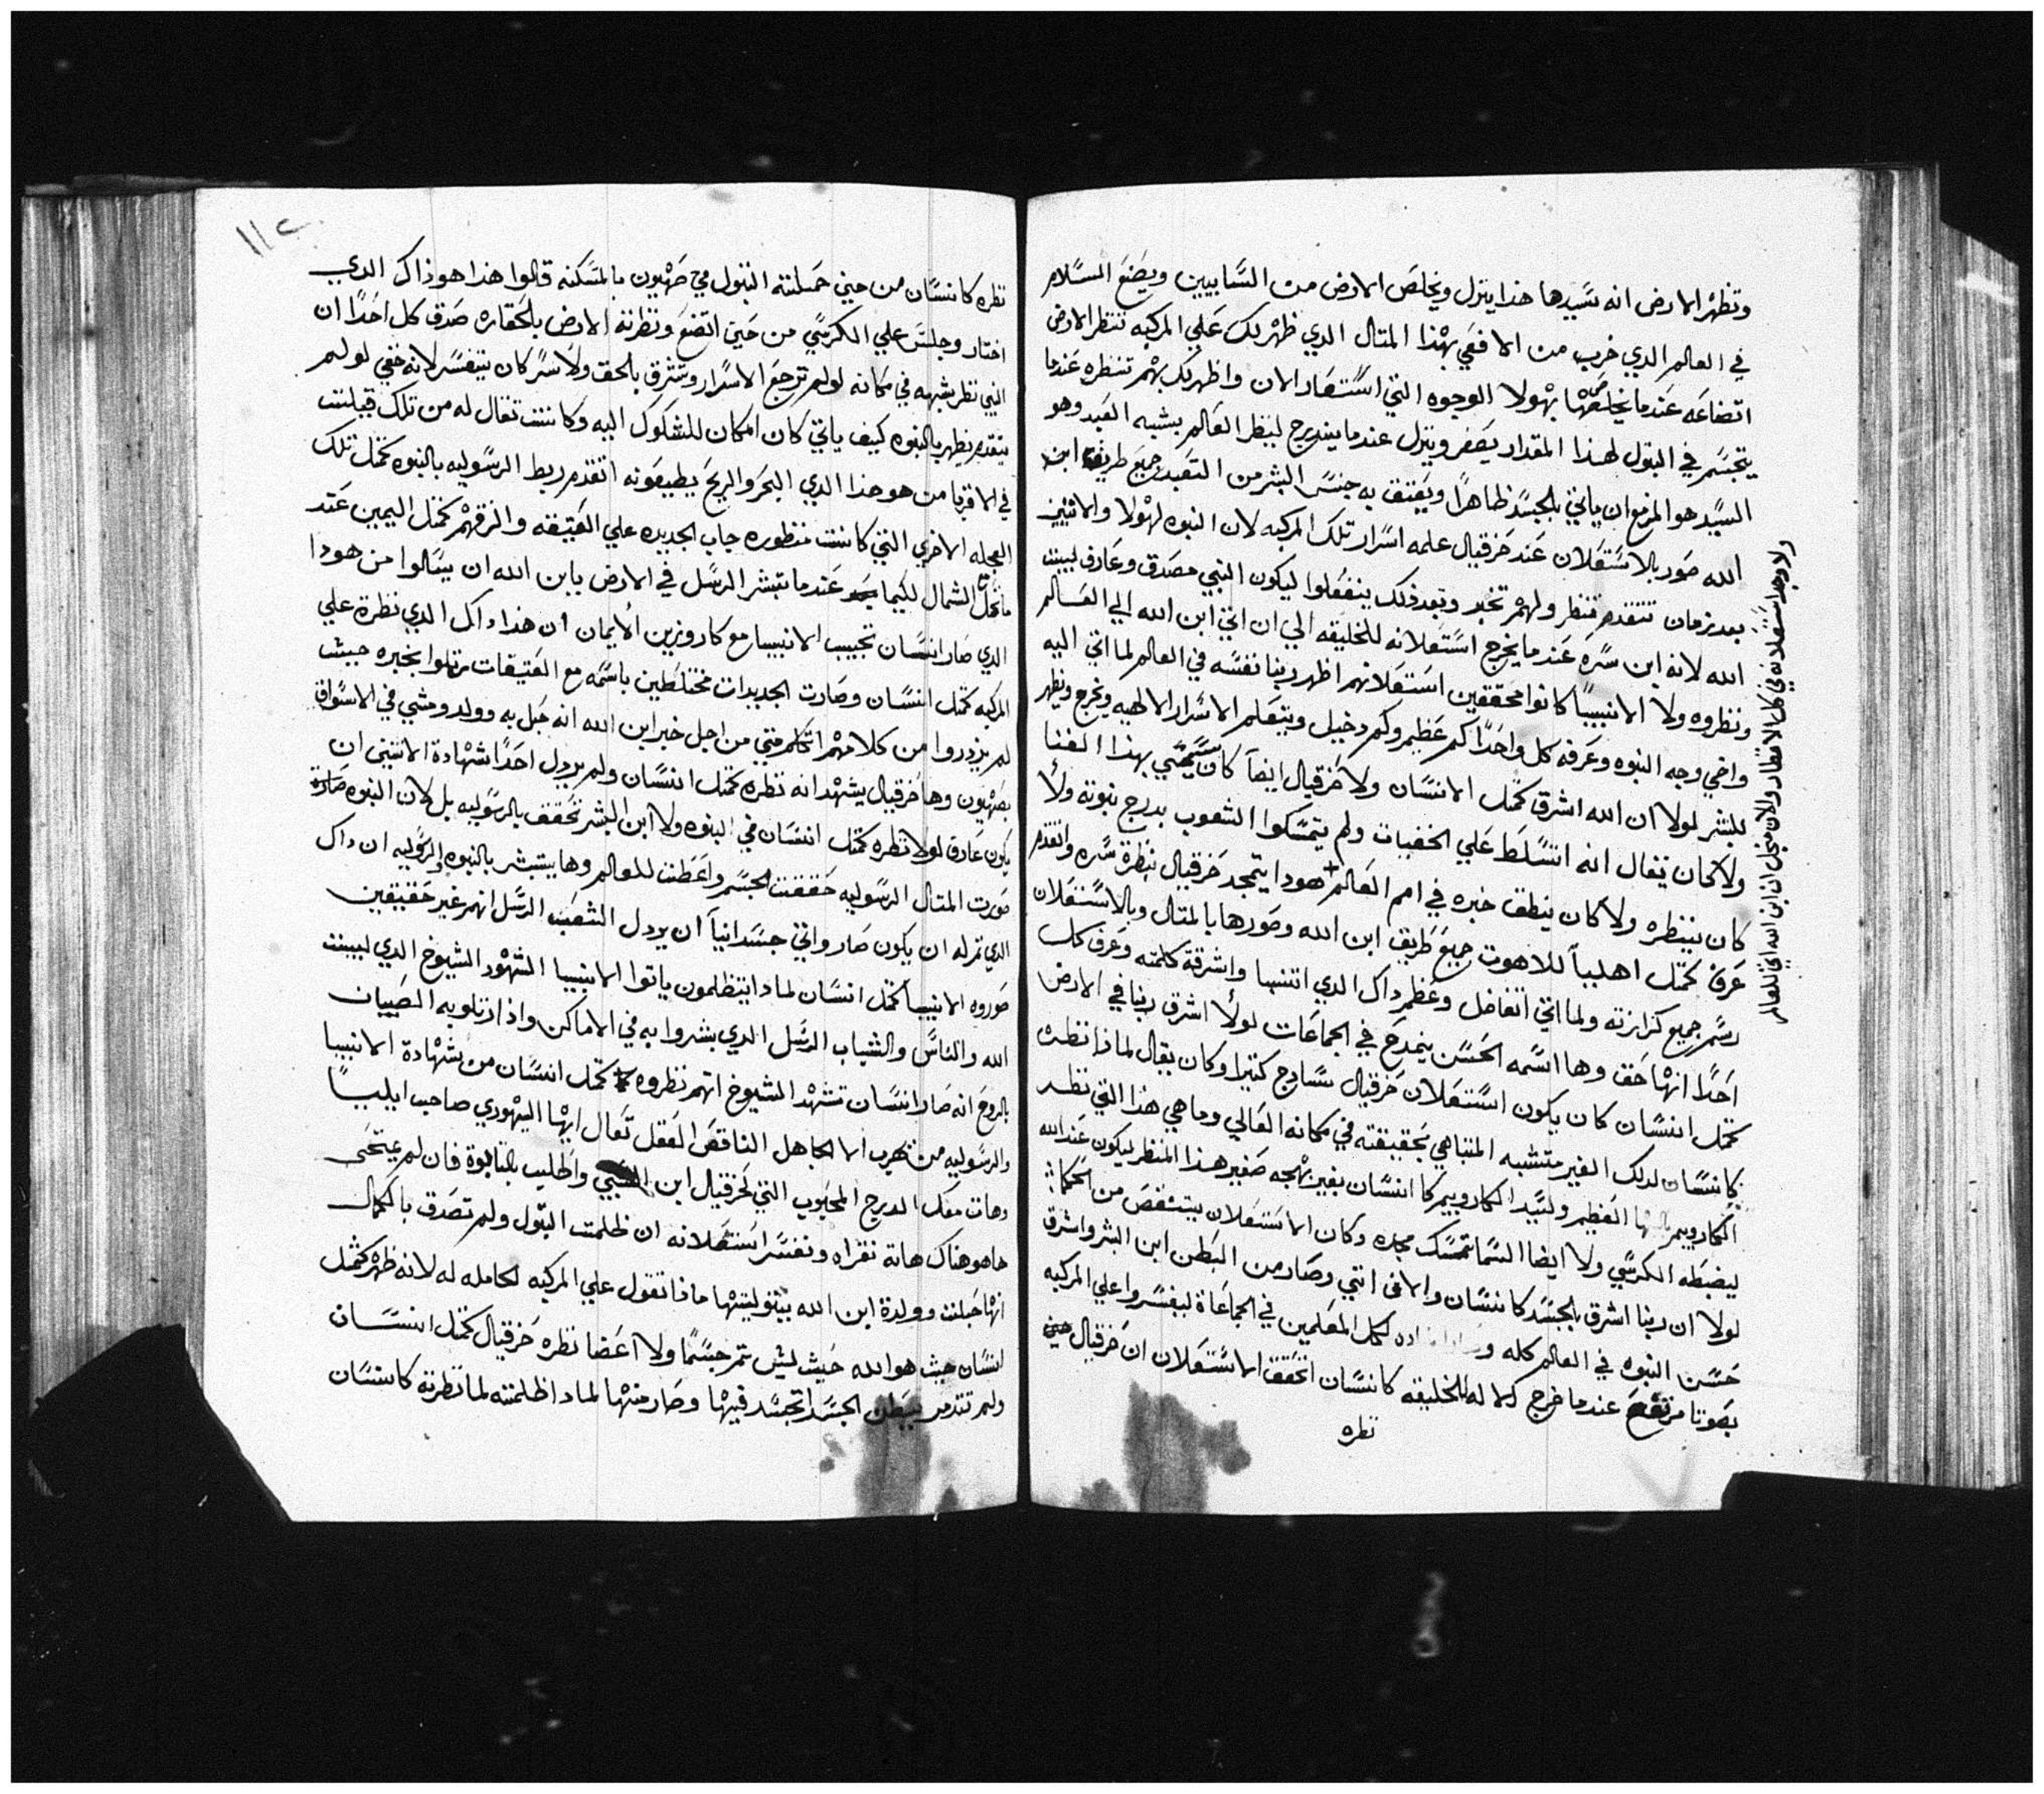 وتظهر الارض انه سيدها هذا ينزل ويخلص الارض من السابيين ويضع السلام
في العالم الدي خرب من الافعي بهذا المتال الدي ظهر لك علي المركبه تنتظر الارض
اتضاعه عندما يخلصها بهولا الوجوه التي استعار الان واظهر لك بهم تنظره عندما
يتجسم في البتول لهذا المقدار يصغر وينزل عندما يندرج لينظر العالم بشبه العبد وهو
السيد هو المزمع ان ياتي بالجسد ظاهرًا ويعتق به جنس البشر من التعبد جميع طريق ابن
الله صور بالاستعلان عند حزقيال علمه اسرار تلك المركبه لان النبوه لهولا والاتيين
بعد زمان تتقدم تنظر ولهم تخبر وبعد ذلك ينفعلوا ليكون النبي مصدق وعارف لبيت
الله لانه ابن سره عندما يخرج استعلانه للخليقه الي ان اتي ابن الله الي العالم
ونظروه ولا الانبيا كانوا محققين استعلانهم اظهر ربنا نفسه في العالم لما اتي اليه
واضي وجه النبوه وعرفه كل واحدًا كم عظيم وكم دخيل ويتعلم الاسرار الالهيه ويخرج ويظهر
للبشر لولا ان الله اشرق كمتل الانسان ولا حزقيال ايضا كان سيمتي بهذا الغنا
ولا كان يقال انه اتسلط علي الخفيات ولم يتمسكوا الشعوب بدرج نبوته ولا
كان ينظره ولا كان ينطق خبره في امم العالم هودا يتمجد حزقيال بنظرة سره واتقدم
عرف كمتل اهلياً للاهوت جميع طريق ابن الله وصورها بالمتال وبالاستعلان
رسم جميع كرازته ولما اتي اتفاضل وعظم داك الدي اتنبا واشرقة كلمته وعرف كل
احدًا انها حق وها اسمه الحسن ينمدح في الجماعات لولا اشرق ربنا في الارض
كمتل انسان كان يكون استعلان حزقيال سادج كتيرا وكان يقال لماذا نظره
كانسان لدلك الغير متشبه المتباهي بحقيقته في مكانه العالي وما هي هذا التي نظر
الكاروبيم العظيم ولسيد الكاروبيم كا انسان بغير بهجه صغير هذا المنظر ليكون عند الله
ليضبطه الكرسي ولا ايضا السما تتمسك مجده وكان الاستعلان يتنقص من الحكما
لولا ان ربنا اشرق بالجسد كانسان والافي اتي وصار من البطن ابن البشر واشرق
حسن النبوه في العالم كله لكل المعلمين في الجماعاة ليفسروا علي المركبه
بصوتا مرتفع عندما خرج له للخليقه كانسان اتحقق الاستعلان ان حزقيال حين
نظره
ولا وجد استعلانه في كل الاقطار والان من اجل ان ابن الله اتي للعالم
١١٢
نظره كانسان من حين حملته البتول في صهيون بالمسكنه قالوا هذا هو ذاك الدي
اختار وجلس علي الكرسي من حين اتضع ونظرته الارض بالحقاره صدق كل احدًا ان
النبي نظر بشبهه في مكانه لو لم ترجع الاسرار وتشرق بالحق ولا سر كان يتفسر لانه خفي لو لم
يتقدم يظهر بالنبوه كيف ياتي كان المكان للشكوك اليه وكانت تقال له من تلك قيلت
في الاقريا من هو هذا الدي البحر والريح يطيعونه اتقدم ربط الرسوليه بالنبوه كمتل تلك
العجله الاخري التي كانت منظوره جاب الجديده علي العتيقه والزقهم كمتل اليمين عند
ماتحل الشمال لكيما عندما تبشر الرسل في الارض بابن الله ان يسالوا من هودا
الدي صار انسان تجيب الانبيا مع كاروزين الايمان ان هذا داك الدي نظرة علي
المركبه كمتل انسان وصارت الجديدات مختلطين باسمه مع العتيقات رتلوا بخبره حيث
لم يزدروا من كلامهم اتكلم متي من اجل خبر ابن الله انه حبل به وولد ومشي في الاسواق
بصهيون وها حزقيال يشهد انه نظره كمتل انسان ولم يردل احدًا شهادة الاتنين ان
يكون عارف لولا نظره كمتل انسان في النبوه ولا ابن البشر تحقق بالرسوليه بل لان النبوه صارة
صورت المتال الرسوليه حققت الجسم واعطت للعالم وها يتبشر بالنبوه والرسوليه ان داك
الدي تم له ان يكون صار واتي جسدانياً ان يردل الشعب الرسل انهم غير حقيقيين
صوروه الانبيا كمتل انسان لمادا يتظلمون ياتوا الانبيا الشهود الشيوخ الدي لبيت
الله والناس والشباب الرسل الدي بشروا به في الاماكن واذا ارتلو به الصبيان
بالروح انه صار انسان تشهد الشيوخ انهم نظروه كمتل انسان من شهادة الانبيا
والرسوليه من تهرب الجاهل الناقص العقل تعال ايها اليهودي صاحب ايليا
وهات معك الدرج المحبوب التي لحزقيال ابن واطليب بالتابوة فان لم يتمحي
ها هو هناك هاته نقراه ونفسر استعلانه ان ظلمت البتول ولم تصدق بالكمال
انها حبلت وولدة ابن الله بتوليتها ماذا تقول علي المركبه الحامله له لانه ظهر كمتل
انسان حيث هو الله حيث ليش تم جسمًا ولا اعضا نظره حزقيال كمتل انسان
ولم تتدمر بطن الجسد اتجسد فيها وصار منها لمادا ظلمته لما نظرته كانسان